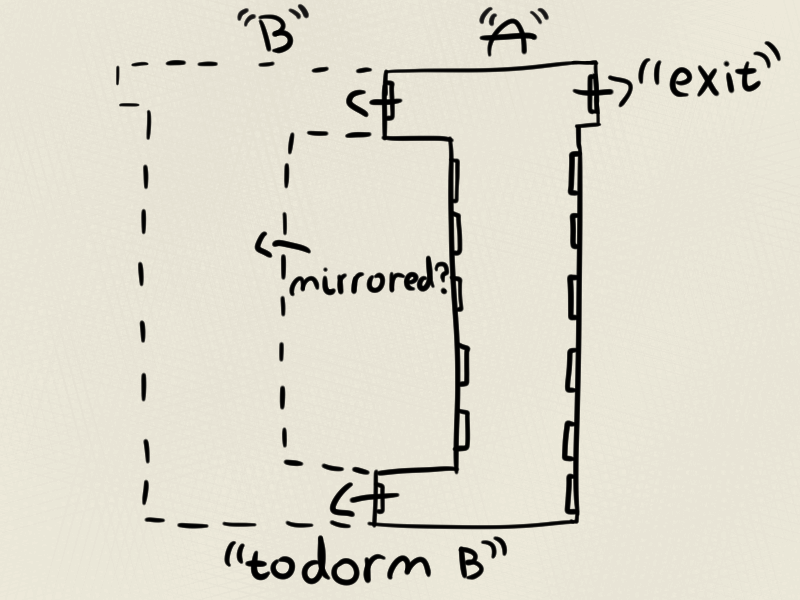 "B"
"A"
"exit"
mirrored?
"to dorm B"